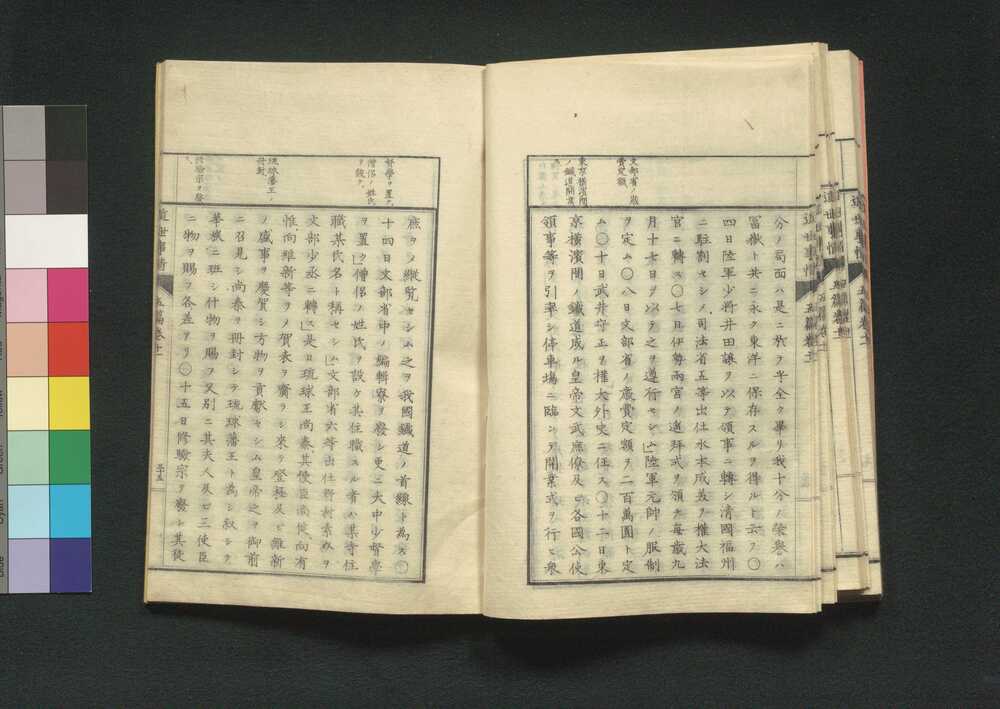 文部省ノ歳
費定額
東京橫濱間
ノ鐵道開業
分ノ局面ハ是ニ於テ乎全ク畢リ我十分ノ榮譽ハ
富嶽ト共ニ永ク東洋ニ保存スルヲ得ルト云フ〇
四日陸軍少將井田讓ヲ以テ領事ニ轉シ淸國福州
ニ駐割セシメ司法省五等出仕水本成美ヲ權大法
官ニ轉ス〇七日伊勢兩宮ノ遙拜式ヲ領チ每歲九
月十七日ヲ以テ之ヲ遵行セシム陸軍元帥ノ服制
ヲ定ム〇八日文部省ノ歲費定額ヲ二百萬圓ト定
ム〇十日武井守正ヲ權大外史ニ任ス〇十二日東
京橫濱間ノ鐵道成ル皇帝文武庶僚及ヒ各國公使
領事等ヲ引率シ停車場ニ臨シテ開業式ヲ行ヒ衆
督學ヲ置ク
僧侶ノ姓氏
ヲ設ク
琉球藩王ノ
冊封
修驗宗ヲ廢
ス
庶ヲメ縱覽セシム之ヲ我國鐵道ノ首線ト為ス〇
十四日文部省中ノ編輯寮ヲ廢シ更ニ大中少督學
ヲ置ク僧侶ノ姓氏ヲ設ケ其住職スル者ハ某寺住
職某氏名ト稱セシム文部省六等出仕野村素介ヲ
文部少丞ニ轉ス是日琉球王尚泰其使臣尚健向有
恆向維新等ヲメ賀表ヲ齎ラシ來テ登極及ヒ維新
ノ盛事ヲ慶賀シ方物ヲ貢獻セシム皇帝之ヲ御前
ニ召見シ尚泰ヲ冊封シテ琉球藩王ト為シ敍シテ
華族ニ班シ什物ヲ賜フ又別ニ其夫人及ヒ三使臣
ニ物ヲ賜フ各差アリ〇十五日修驗宗ヲ廢シ其徒
近世事情
五篇卷十一
三十五